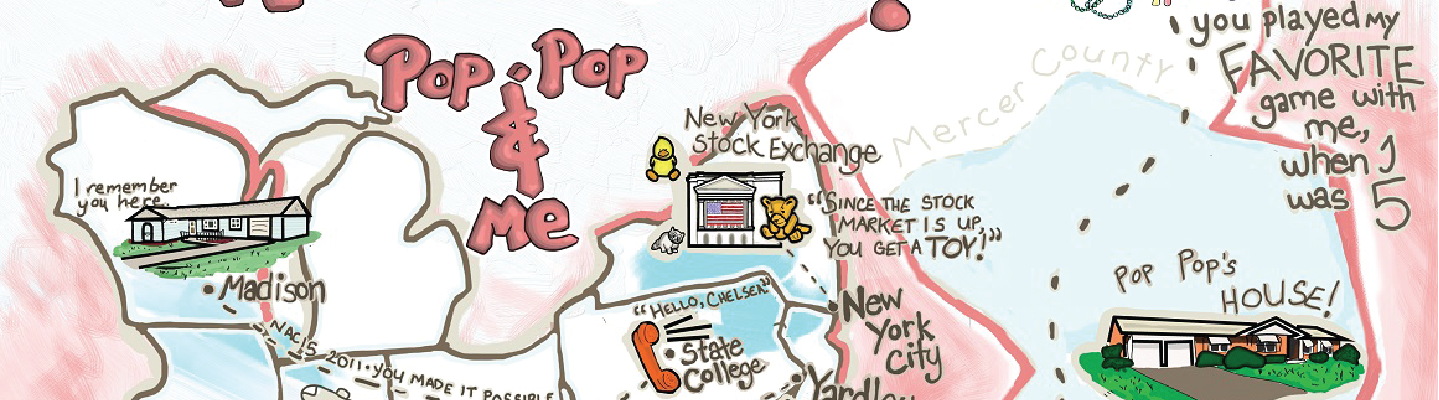 Pop Pop
&
Me
I remember
you here..
Madison
NACIS 2011. YOU MADE IT POSSIBLE
New York
Stock Exchange
"SINCE THE STOCK
MARKET IS UP,
YOU GET A TOY!"
"HELLO, CHELSEA"
State
College
New
York
City
Yardley
Mercer County
you played my
FAVORITE
game with
me,
when I
was 5
POP POP'S
HOUSE!